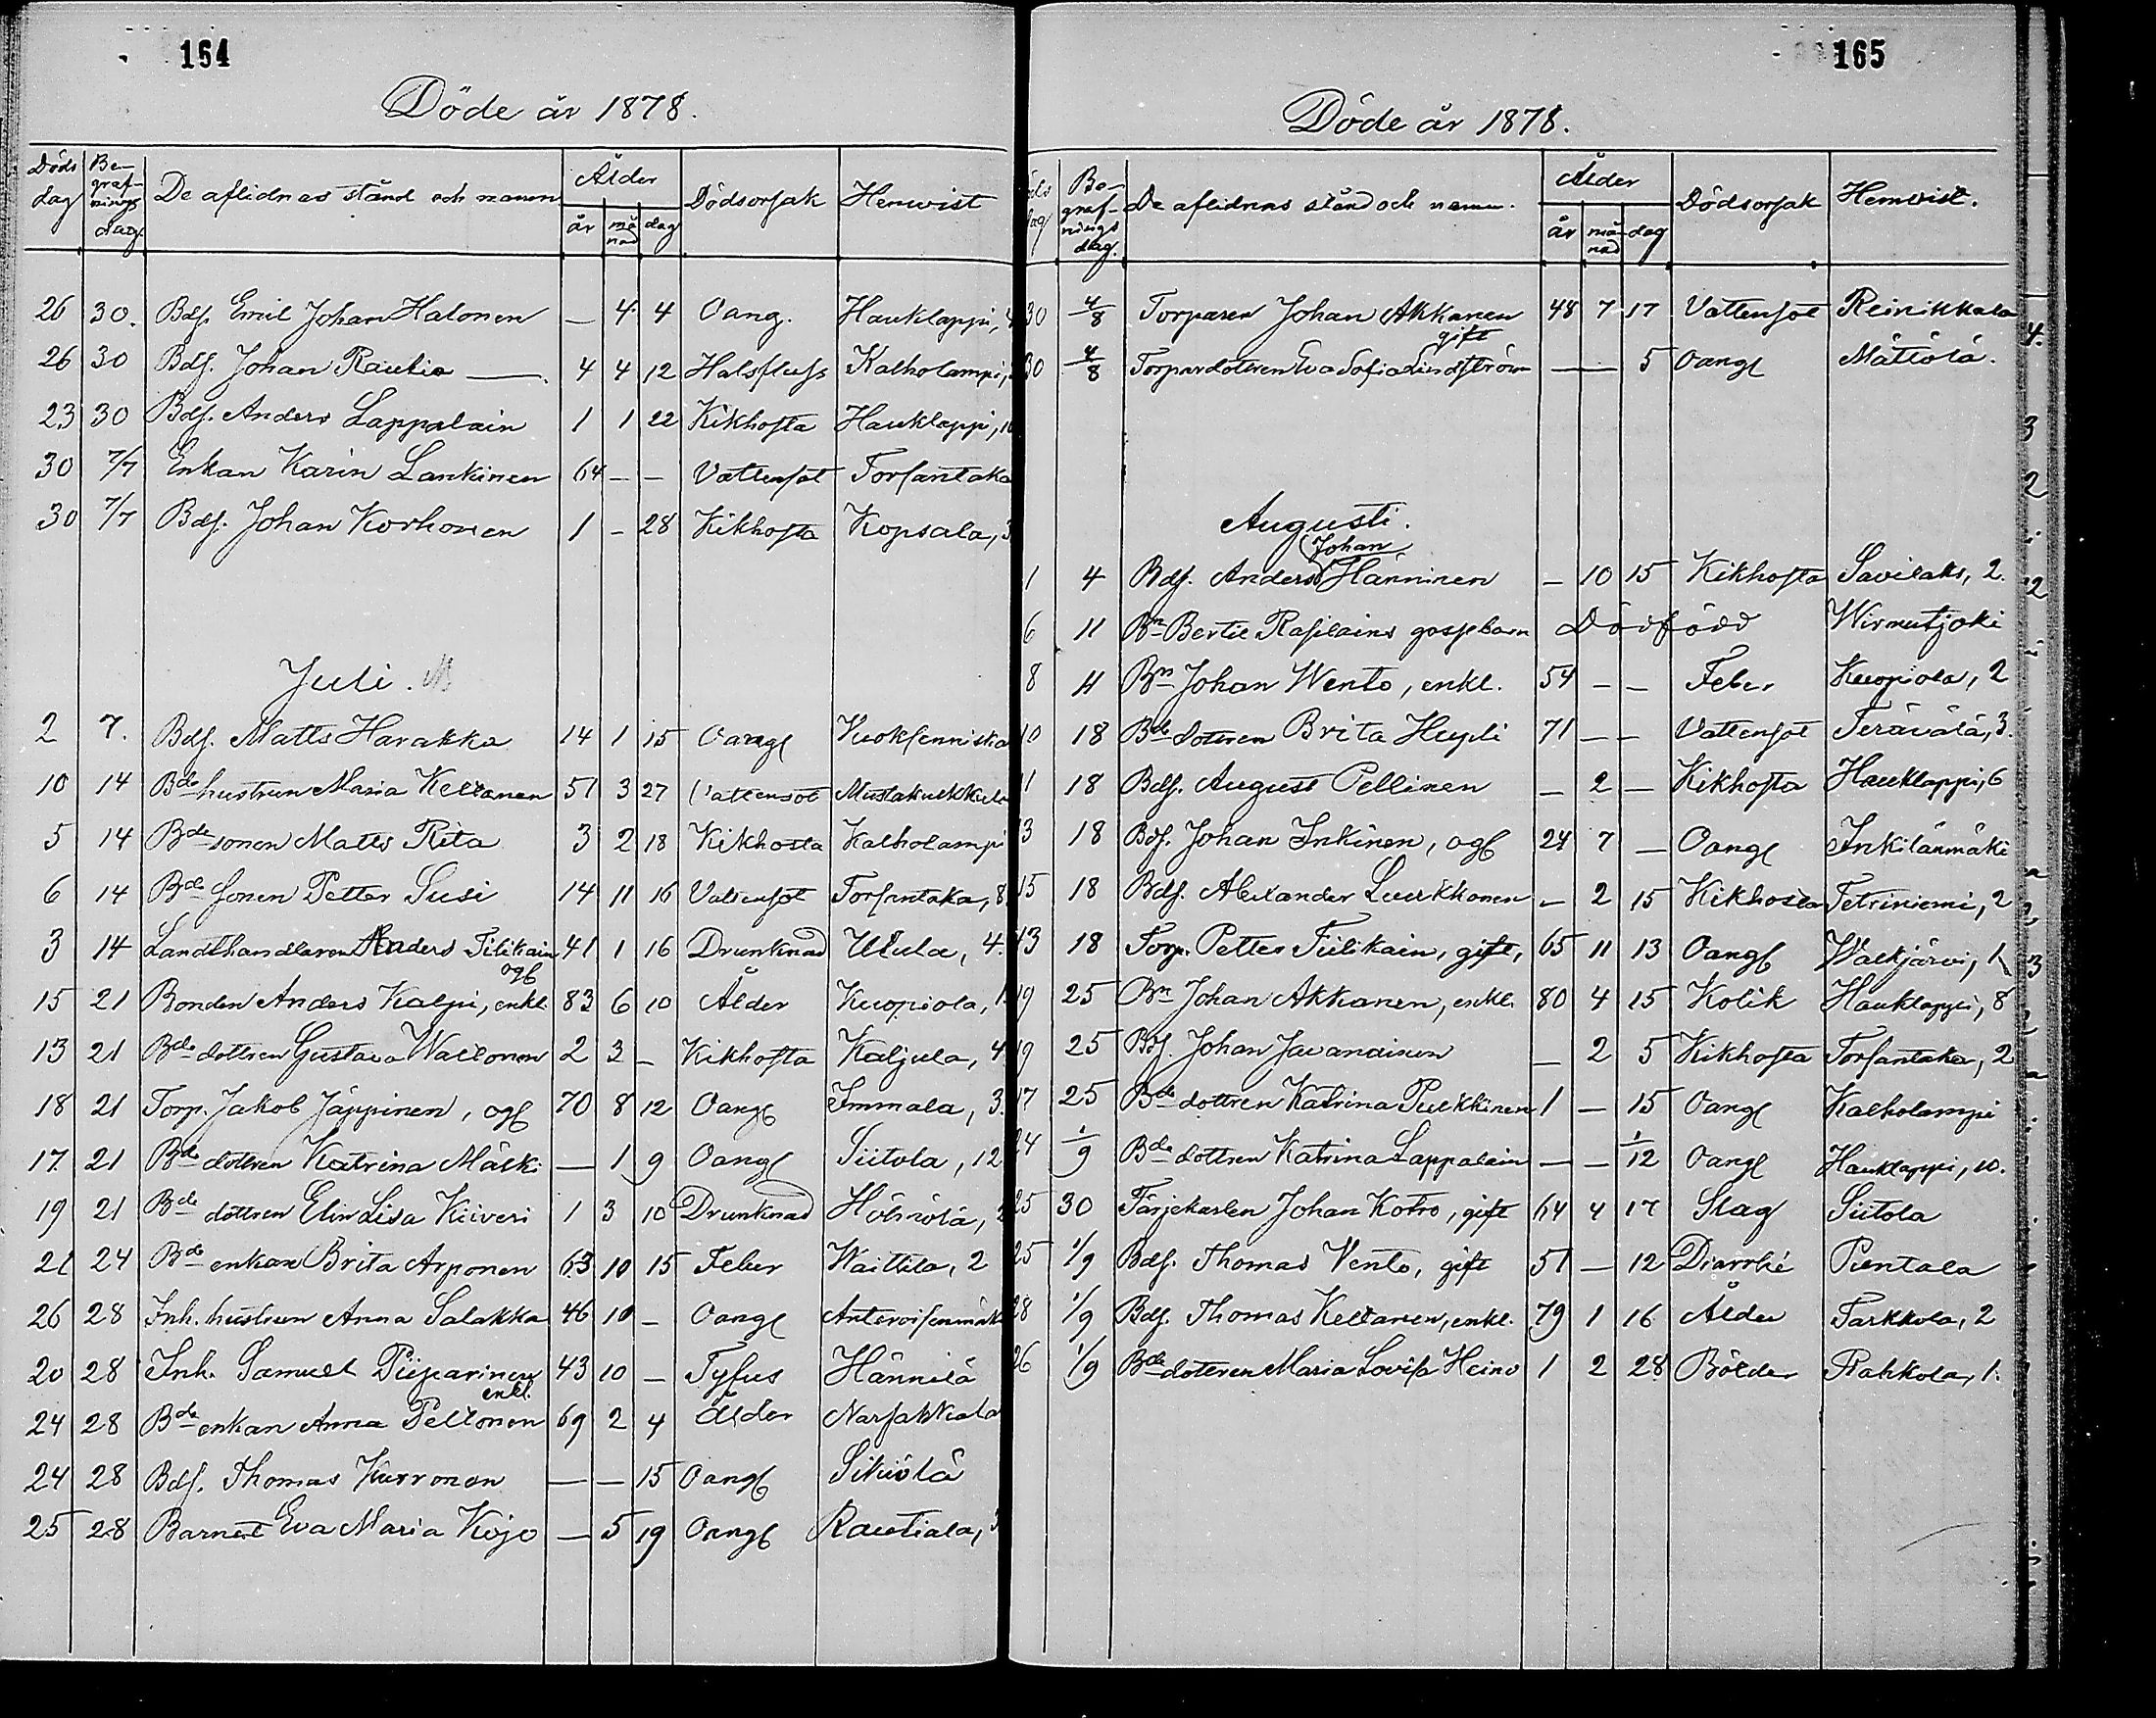 164
Döde år 1878.
Döds dag | Begrafnings dag. | De aflidnas stånd och namn | Ålder år månad dag | Dödsorsak | Hemvist
26 30. Bds. Emil Johan Halonen — 4 4 Oang. Hauklappi,
26 30 Bds. Johan Rautio — 4 4 12 Halsfluss Kalholampi,
23 30 Bds. Anders Lappalain 1 1 22 Kikhosta Hauklappi, 10
30 7/7 Enkan Karin Lankinen 64 — — Vattensot Torsantaka
30 7/7 Bds. Johan Korhonen 1 — 28 Kikhosta Kopsala, 3
Juli.
2 7. Bds. Matts Harakka 14 1 15 Oang Vuoksenniska
10 14 Bde hustrun Maria Keltanen 51 3 27 Vattensot Mustakulkkula
5 14 Bde sonen Matts Rita 3 2 18 Kikhosta Kalholampi
6 14 Bde sonen Petter Susi 14 11 16 Vattensot Torsantaka, 8
3 14 Landthandlaren Anders Tilikain 41 1 16 Drunknad Utula, 4.
ogf
15 21 Bonden Anders Kalpi, enkl. 83 6 10 Ålder Kuopiola, 1
13 21 Bde dottren Gustava Waltonen 2 3 — Kikhosta Kaljula, 4
18 21 Torp. Jakob Jäppinen, ogf 70 8 12 Oang Immala, 3.
17. 21 Bde dottren Katrina Mälki — 1 9 Oang Siitola, 12
19 21 Bde dottren Elin Lisa Kiiveri 1 3 10 Drunknad Hölsölä, 2
21 24 Bde enkan Brita Arponen 63 10 15 Feber Waittila, 2
26 28 Inh. hustrun Anna Salakka 46 10 — Oang
20 28 Inh. Samuel Piiparinen 43 10 — Tyfus Hännilä
enkl.
24 28 Bde enkan Anna Peltonen 69 2 4 Ålder Narsakkala
24 28 Bds. Thomas Kurronen — — 15 Oang Sikiölä
25 28 Barnet Eva Maria Kojo — 5 19 Oang Rautiala, 3
165
Döde år 1878.
Döds dag | Begrafnings dag. | De aflidnas stånd och namn. | Ålder år månad dag | Dödsorsak | Hemvist.
30 4/8 Torparen Johan Akkanen 48 7 17 Vattensot Reinikkala
gift
30 4/8 Torpardottren Eva Sofia Lindström — — 5 Oang Mättölä.
Augusti.
Johan
1 4 Bds. Anders Hänninen — 10 15 Kikhosta Savilaks, 2.
6 11 Bn Bertil Rasilains gossebarn Dödfödd Wirmutjoki
8 11 Bn Johan Wento, enkl. 54 — — Feber Kuopiola, 2
10 18 Bde dottren Brita Hupli 71 — — Vattensot Terävälä, 3.
11 18 Bds. August Pellinen — 2 — Kikhosta Hauklappi, 6
13 18 Bds. Johan Inkinen, ogf 24 7 — Oang Inkilänmäki
15 18 Bds. Alexander Luukkonen — 2 15 Kikhosta Tetriniemi, 2
13 18 Torp. Petter Tiilikain, gift, 65 11 13 Oang Walkjärvi, 1
19 25 Bn Johan Akkanen, enkl. 80 4 15 Kolik Hauklappi, 8
19 25 Bds. Johan Javanainen — 2 5 Kikhosta Torsantaka, 2
17 25 Bde dottren Katrina Pulkkinen 1 — 15 Oang Kalholampi
24 1/9 Bde dottren Katrina Lappalain — — 1/12 Oang Hauklappi, 10.
25 30 Färjekarlen Johan Kotro, gift 64 4 17 Slag Siitola
25 1/9 Bds. Thomas Vento, gift 51 — 12 Diarrhé Pentala
28 1/9 Bds. Thomas Keltanen, enkl. 79 1 16 Ålder Tarkkola, 2
26 1/9 Bde dottren Maria Lovisa Heino 1 2 28 Bölder Rahkola, 1.